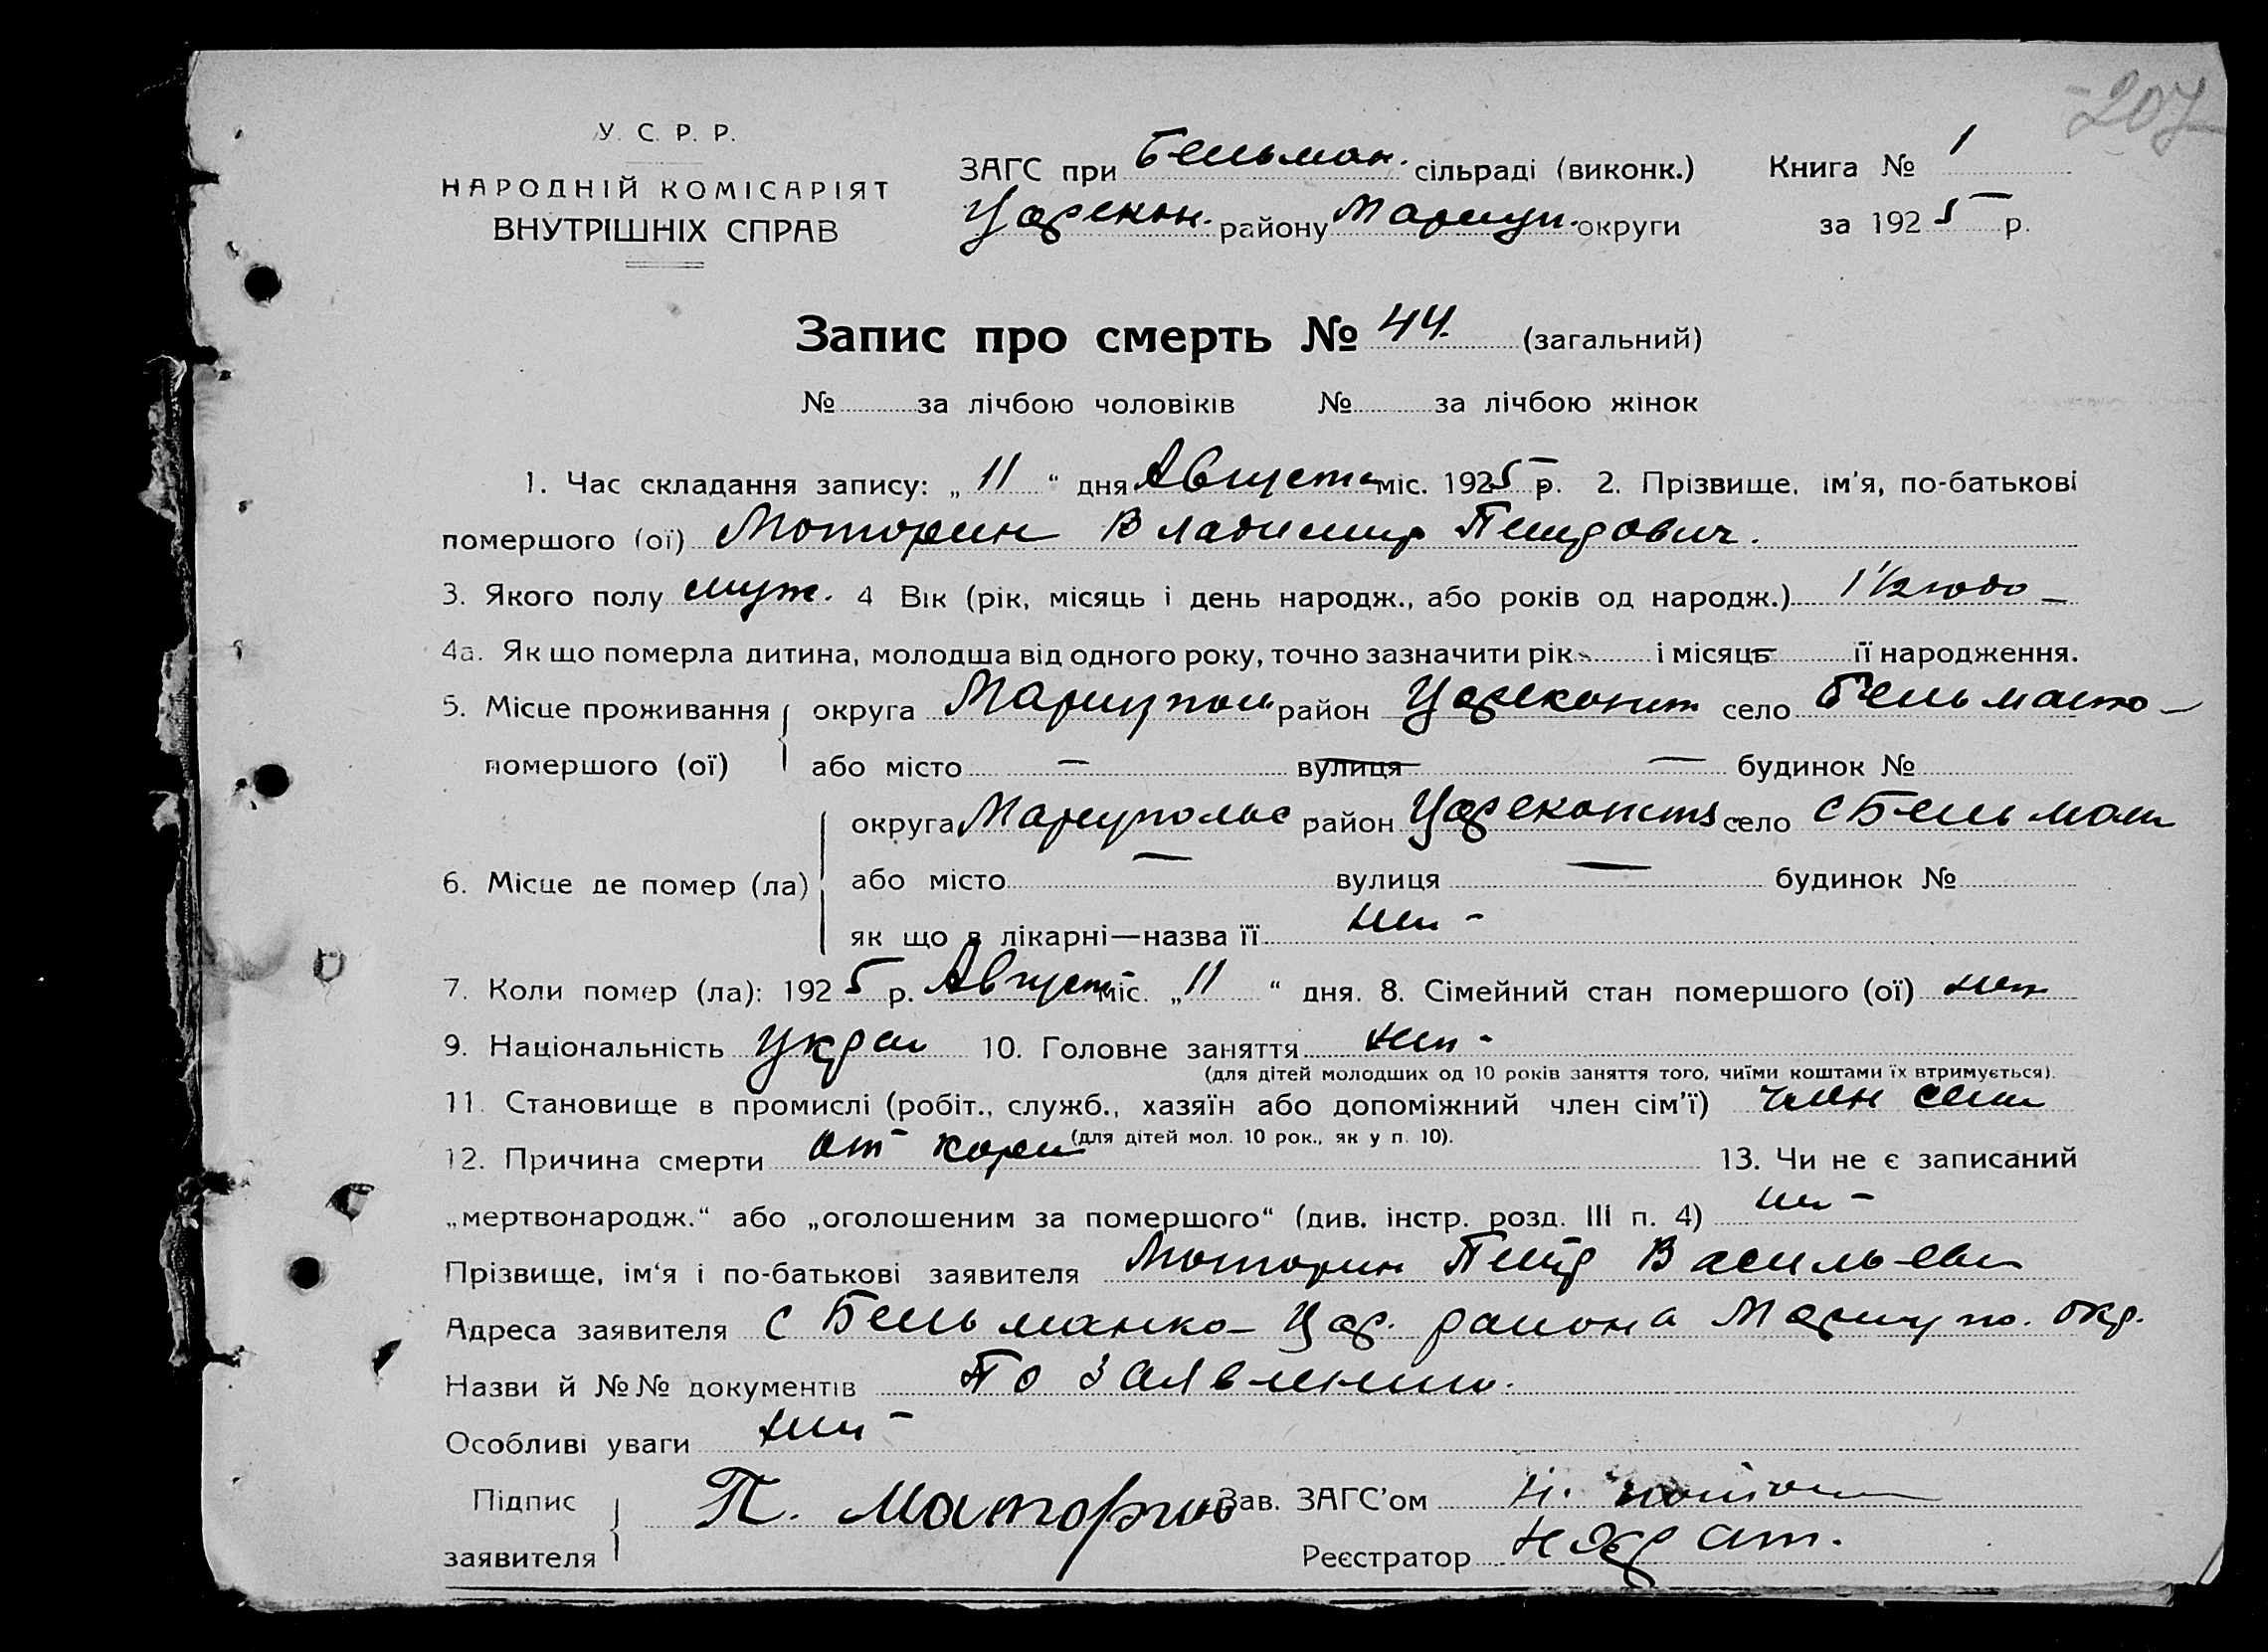 207
У. С. Р. Р.
НАРОДНІЙ КОМІСАРІЯТ
ВНУТРІШНІХ СПРАВ
ЗАГС при Бельман. сільраді (виконк.) Книга № 1
Царекон. району Мариуп. округи за 1925 р.
Запис про смерть № 44. (загальний)
№ за лічбою чоловіків № за лічбою жінок
1. Час складання запису: „11“ дня Августа міс. 1925 р. 2. Прізвище, ім'я, по-батькові
помершого (ої) Моторин Владимир Петрович.
3. Якого полу муж. 4 Вік (рік, місяць і день народж., або років од народж.) 1 1/2 годо –
4а. Як що померла дитина, молодша від одного року, точно зазначити рік і місяць її народження.
5. Місце проживання помершого (ої) округа Мариупол район Цареконст село Бельманко –
або місто — вулиця — будинок №
6. Місце де помер (ла) округа Мариупольс район Цареконст село с Бельман
або місто — вулиця — будинок №
як що в лікарні—назва її нет -
7. Коли помер (ла): 1925 р. Август міс. „11“ дня. 8. Сімейний стан помершого (ої) нет
9. Національність Украи 10. Головне заняття нет -
(для дітей молодших од 10 років заняття того, чиїми коштами їх втримується).
11. Становище в промислі (робіт., служб., хазяїн або допоміжний член сім'ї) член семи
(для дітей мол. 10 рок., як у п. 10).
12. Причина смерти от кори 13. Чи не є записаний
„мертвонародж.“ або „оголошеним за помершого“ (див. інстр. розд. III п. 4) нет –
Прізвище, ім'я і по-батькові заявителя Моторин Петр Васильеви
Адреса заявителя с Бельманко – Цар. раиона Мариупо. окр.
Назви й №№ документів По заявлению.
Особливі уваги нет
Підпис заявителя П. Маторин Зав. ЗАГС'ом Н.
Реєстратор